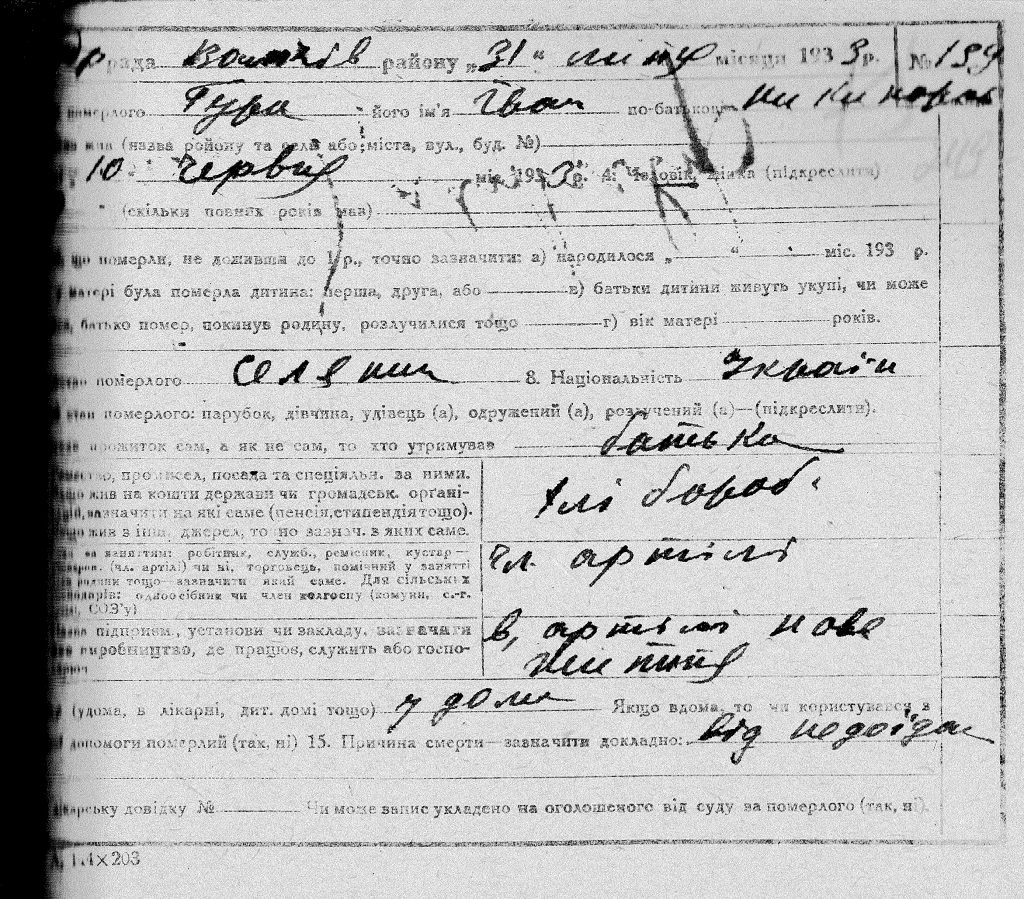 рада району „31“ липня місяця 1933р. №
померлого Гура його ім'я Іван по-батькові
(назва району та села або міста, вул., буд. №)
10 Червня міс. 1933р. 4. Чоловік, жінка (підкреслити)
(скільки повних років мав)
що померли, не доживши до 1 р., точно зазначити: а) народилося „ “ міс. 193 р.
матері була померла дитина: перша, друга, або в) батьки дитини живуть укупі, чи може
батько помер, покинув родину, розлучилися тощо г) вік матері років.
померлого Селянин 8. Національність Україн
померлого: парубок, дівчина, удівець (а), одружений (а), розлучений (а)—(підкреслити).
прожиток сам, а як не сам, то хто утримував батько
промисел, посада та спеціяльн. за ними.
жив на кошти держави чи громадськ. орґані-
зазначити на які саме (пенсія, стипендія тощо).
жив з інш. джерел, то но зазнач. з яких саме.
Хлібороб.
заняттям: робітник, служб., ремісник, кустар—
(чл. артілі) чи ні, торговець, помічний у занятті
родини тощо—зазначити який саме. Для сільських
одноосібник чи член колгоспу (комуни, с.-г.
СОЗ'у)
чл. артілі
підприєм., установи чи закладу, зазначити
виробництво, де працює, служить або госпо-
в, артілі нове
життя
(удома, в лікарні, дит. домі тощо) у дома Якщо вдома, то чи користувався з
допомоги померлий (так, ні) 15. Причина смерти—зазначити докладно: від недоїдан
лікарську довідку № Чи може запис укладено на оголошеного від суду за померлого (так, ні).